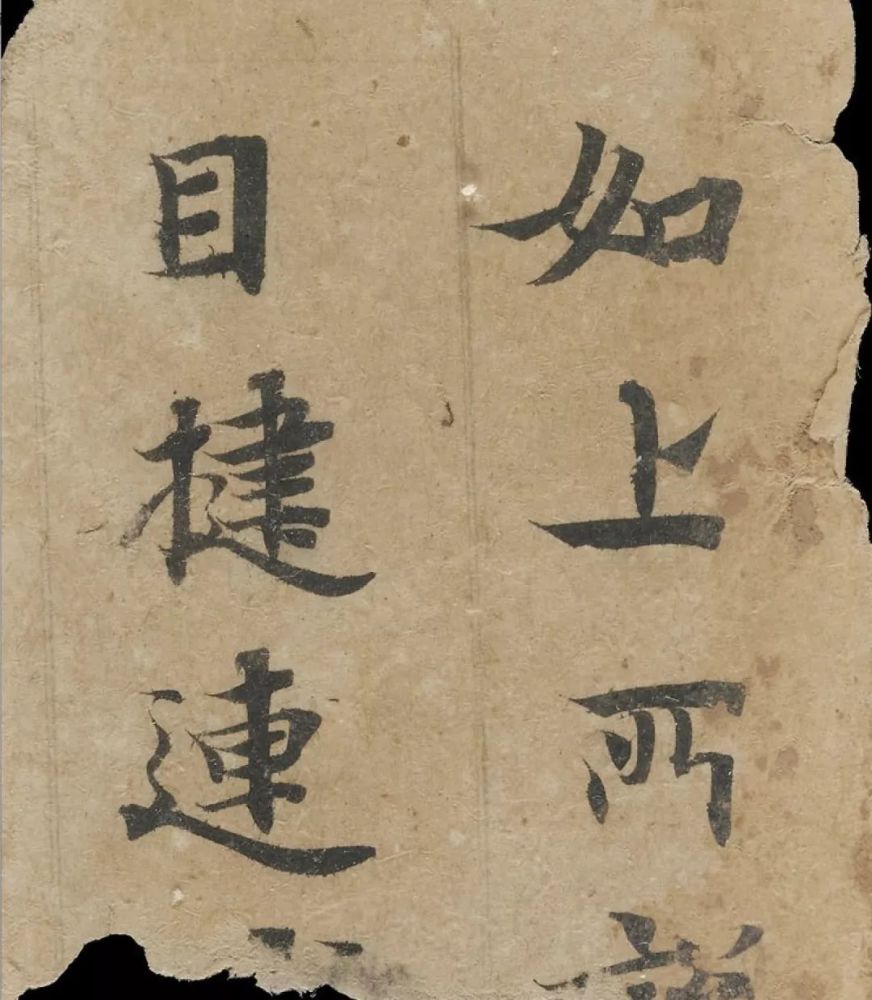 如上所說
目揵連